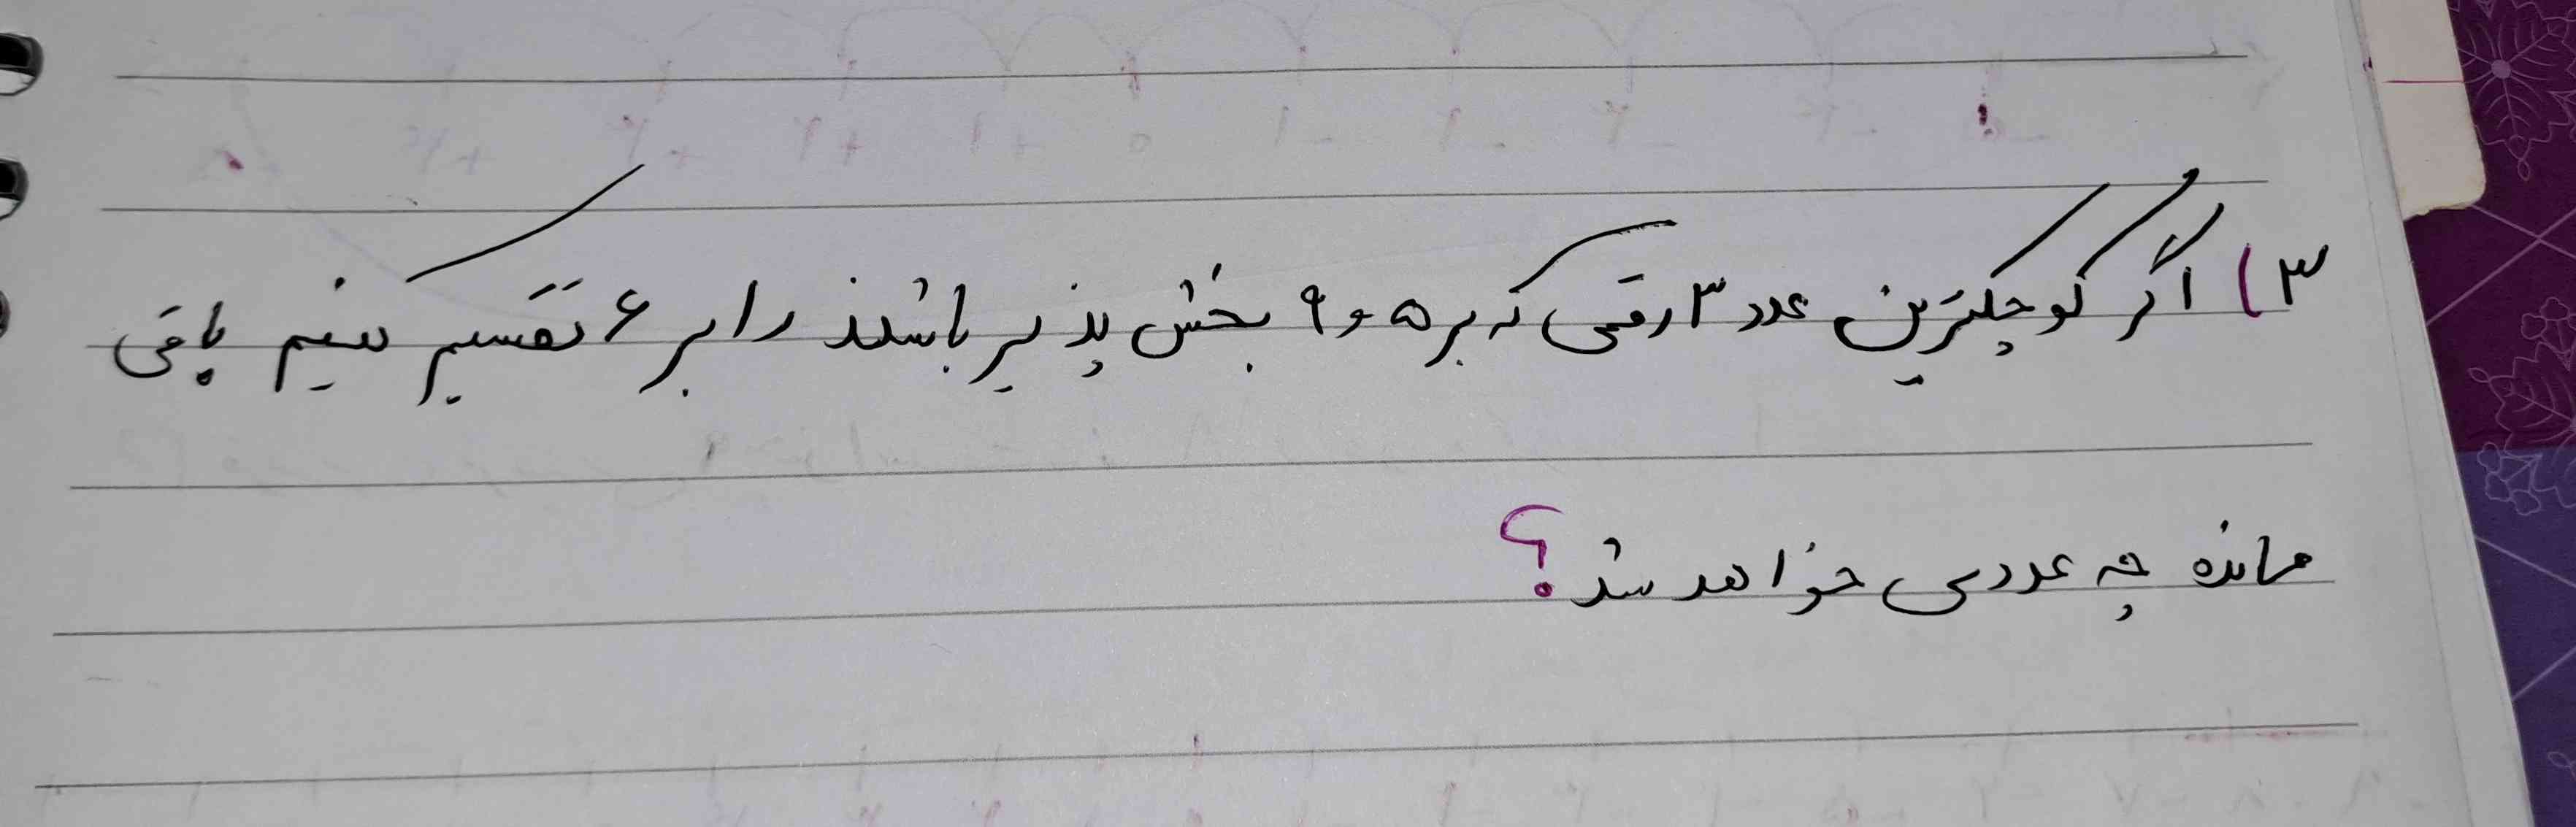 ۳) اگر کوچکترین عدد ۳ رقمی که بر ۵ و ۹ بخش پذیر باشند را بر ۶ تقسیم کنیم باقی
مانده چه عددی خواهد شد؟